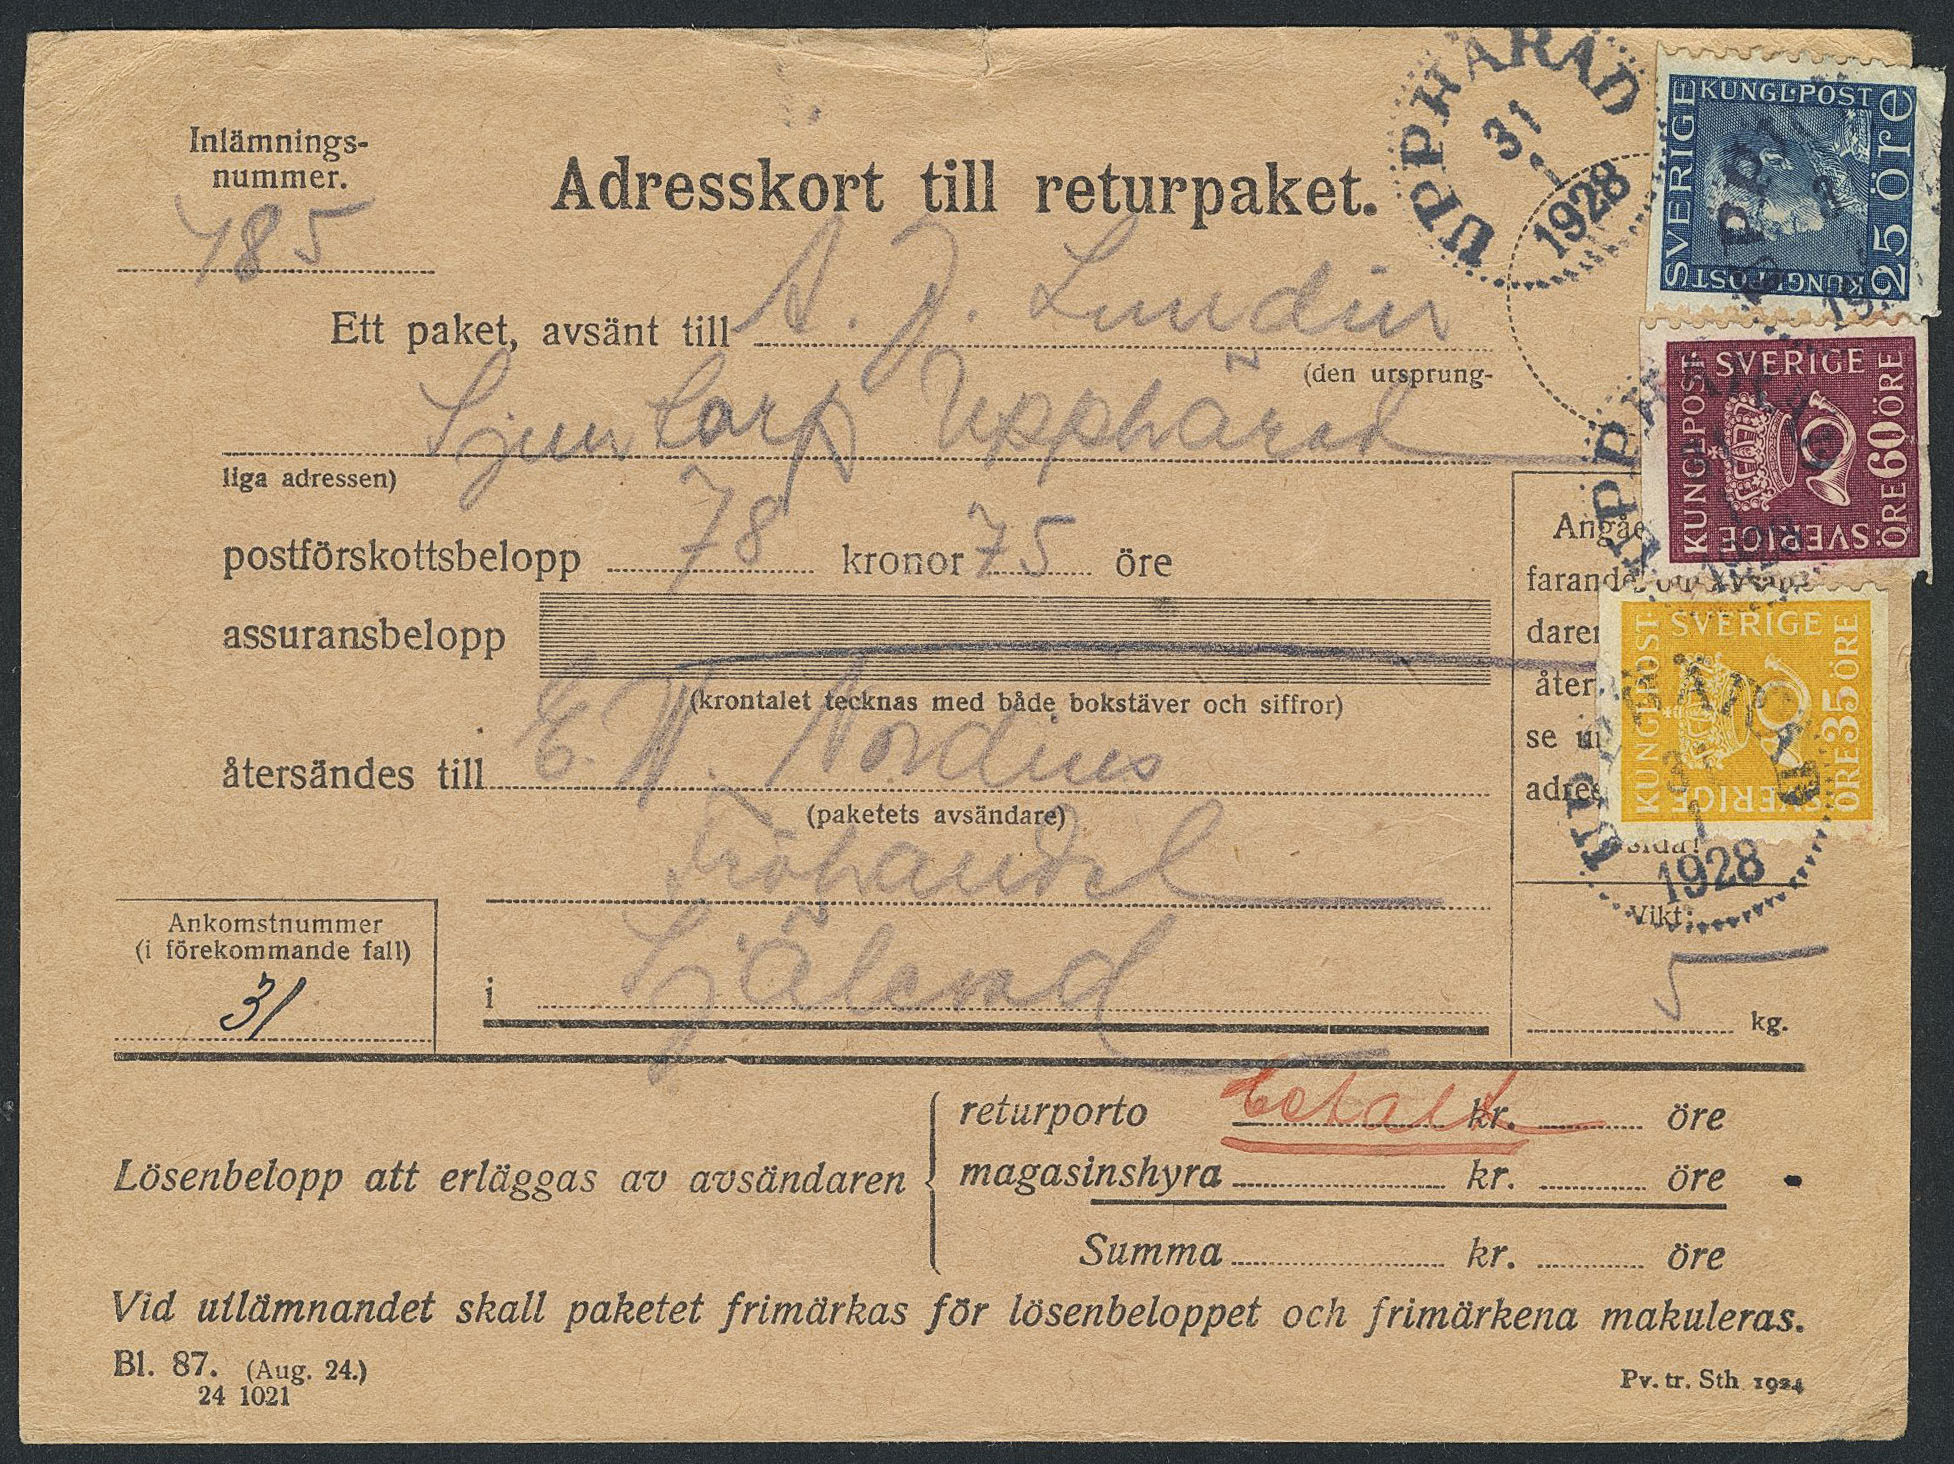 Inlämnings-
nummer.
485
Adresskort till returpaket.
UPPHÄRAD
31
1
1928
Ett paket, avsänt till A. J. Lundin
(den ursprung-
Sjuntorp Upphärad
liga adressen)
postförskottsbelopp 78 kronor 75 öre
assuransbelopp
(krontalet tecknas med både bokstäver och siffror)
återsändes till E. W. Nordius
(paketets avsändare)
Fröhandel
i Själevad
Ankomstnummer
(i förekommande fall)
31
SVERIGE KUNGL·POST
25 öre
KUNGL·POST
SVERIGE
KUNGLPOST
ÖRE 60 ÖRE
SVERIGE
farande
åter
se
adres
SVERIGE
KUNGLPOST
ÖRE 35 ÖRE
SVERIGE
1
1928
Vikt:
5 kg.
returporto Betalt kr. öre
Lösenbelopp att erläggas av avsändaren
magasinshyra kr. öre
Summa kr. öre
Vid utlämnandet skall paketet frimärkas för lösenbeloppet och frimärkena makuleras.
Bl. 87. (Aug. 24.)
24 1021
Pv. tr. Sth 1924